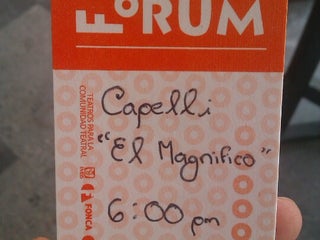 FoRUM
Capelli
"El Magnifico"
6:00 pm
TEATROS PARA LA
COMUNIDAD TEATRAL
FONCA